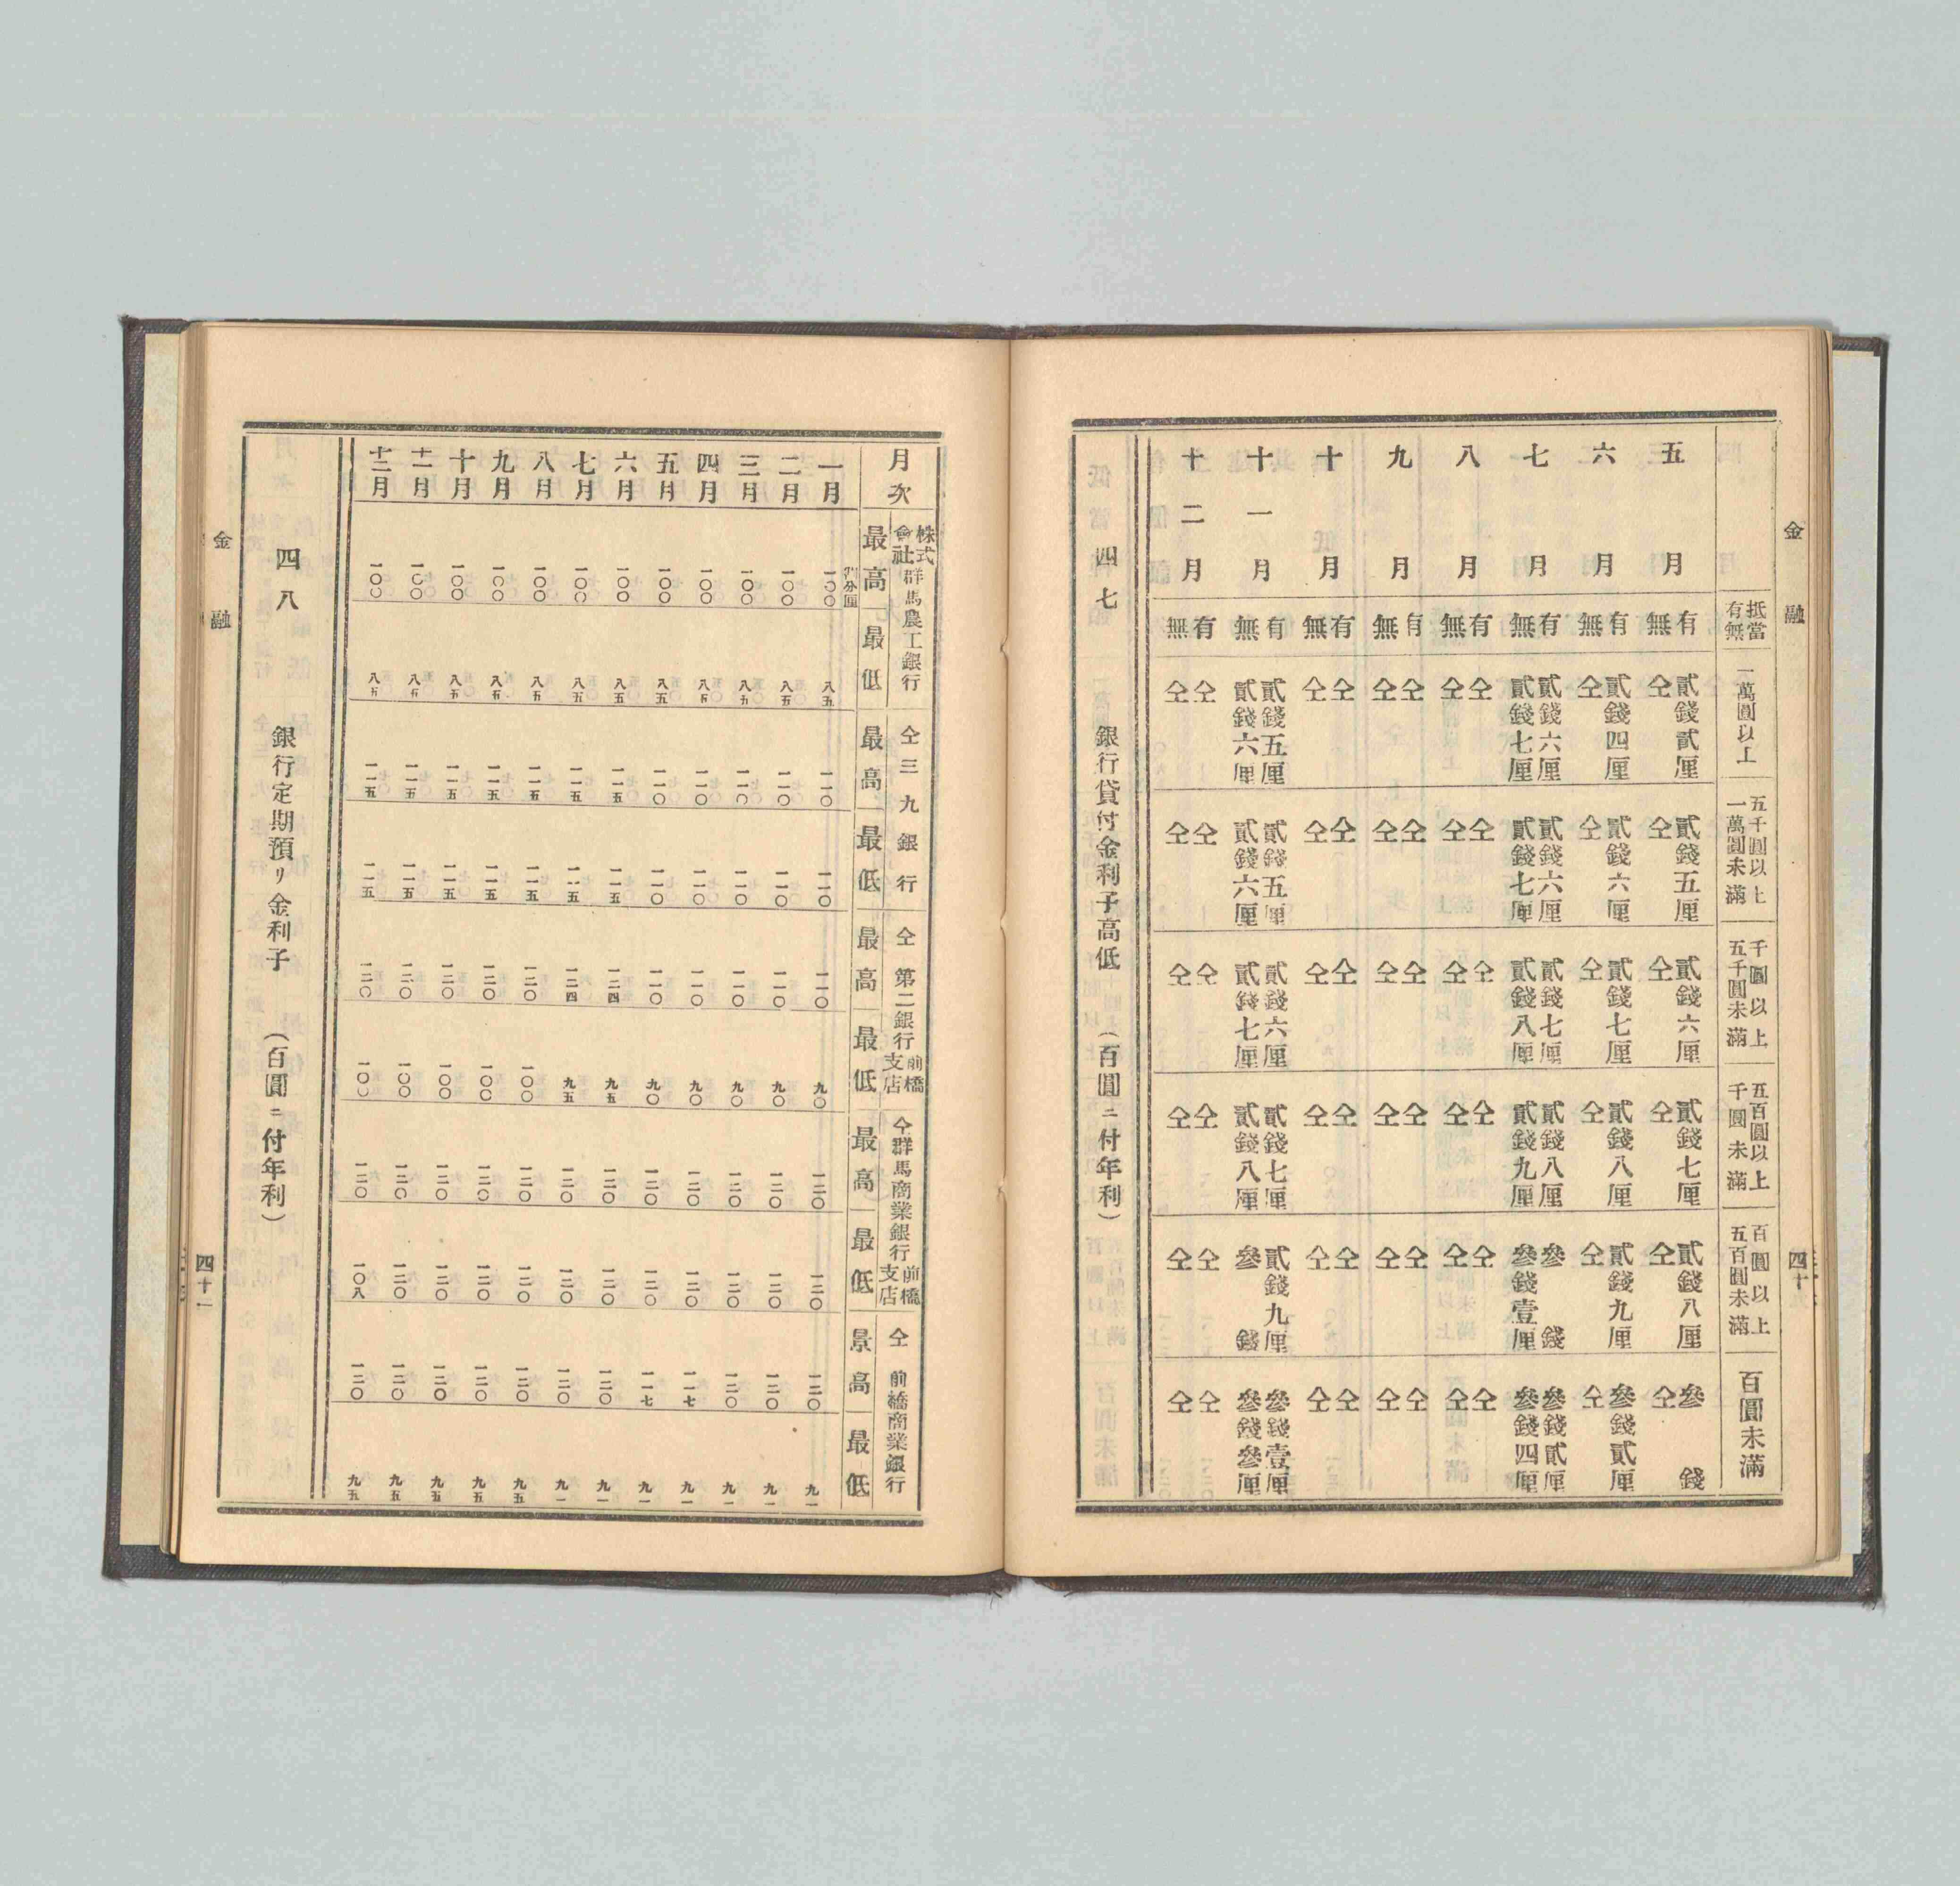 金融 四十
抵當有無 一萬圓以上 五千圓以上一萬圓未滿 千圓以上五千圓未滿 五百圓以上千圓未滿 百圓以上五百圓未滿 百圓未滿
五月 有 貳錢貳厘 貳錢五厘 貳錢六厘 貳錢七厘 貳錢八厘 參錢
無 仝 仝 仝 仝 仝 仝
六月 有 貳錢四厘 貳錢六厘 貳錢七厘 貳錢八厘 貳錢九厘 參錢貳厘
無 仝 仝 仝 仝 仝 仝
七月 有 貳錢六厘 貳錢六厘 貳錢七厘 貳錢八厘 參錢 參錢貳厘
無 貳錢七厘 貳錢七厘 貳錢八厘 貳錢九厘 參錢壹厘 參錢四厘
八月 有 仝 仝 仝 仝 仝 仝
無 仝 仝 仝 仝 仝 仝
九月 有 仝 仝 仝 仝 仝 仝
無 仝 仝 仝 仝 仝 仝
十月 有 仝 仝 仝 仝 仝 仝
無 仝 仝 仝 仝 仝 仝
十一月 有 貳錢五厘 貳錢五厘 貳錢六厘 貳錢七厘 貳錢九厘 參錢壹厘
無 貳錢六厘 貳錢六厘 貳錢七厘 貳錢八厘 參錢 參錢參厘
十二月 有 仝 仝 仝 仝 仝 仝
無 仝 仝 仝 仝 仝 仝
四七 銀行貸付金利子高低 (百圓ニ付年利)
月次 株式會社群馬農工銀行 仝三九銀行 仝第二銀行前橋支店 仝群馬商業銀行前橋支店 仝前橋商業銀行
最高 最低 最高 最低 最高 最低 最高 最低 最高 最低
割分厘
一月 一〇〇 八五 一一〇 一一〇 一一〇 九〇 一二〇 一二〇 一二〇 九一
二月 一〇〇 八五 一一〇 一一〇 一一〇 九〇 一二〇 一二〇 一二〇 九一
三月 一〇〇 八五 一一〇 一一〇 一一〇 九〇 一二〇 一二〇 一二〇 九一
四月 一〇〇 八五 一一〇 一一〇 一一〇 九〇 一二〇 一二〇 一一七 九一
五月 一〇〇 八五 一一〇 一一〇 一一〇 九〇 一二〇 一二〇 一一七 九一
六月 一〇〇 八五 一一五 一一五 一二四 九五 一二〇 一二〇 一二〇 九一
七月 一〇〇 八五 一一五 一一五 一二四 九五 一二〇 一二〇 一二〇 九一
八月 一〇〇 八五 一一五 一一五 一二〇 一〇〇 一二〇 一二〇 一二〇 九五
九月 一〇〇 八五 一一五 一一五 一二〇 一〇〇 一二〇 一二〇 一二〇 九五
十月 一〇〇 八五 一一五 一一五 一二〇 一〇〇 一二〇 一二〇 一二〇 九五
十一月 一〇〇 八五 一一五 一一五 一二〇 一〇〇 一二〇 一二〇 一二〇 九五
十二月 一〇〇 八五 一一五 一一五 一二〇 一〇〇 一二〇 一〇八 一二〇 九五
四八 銀行定期預リ金利子 (百圓ニ付年利)
金融 四十一